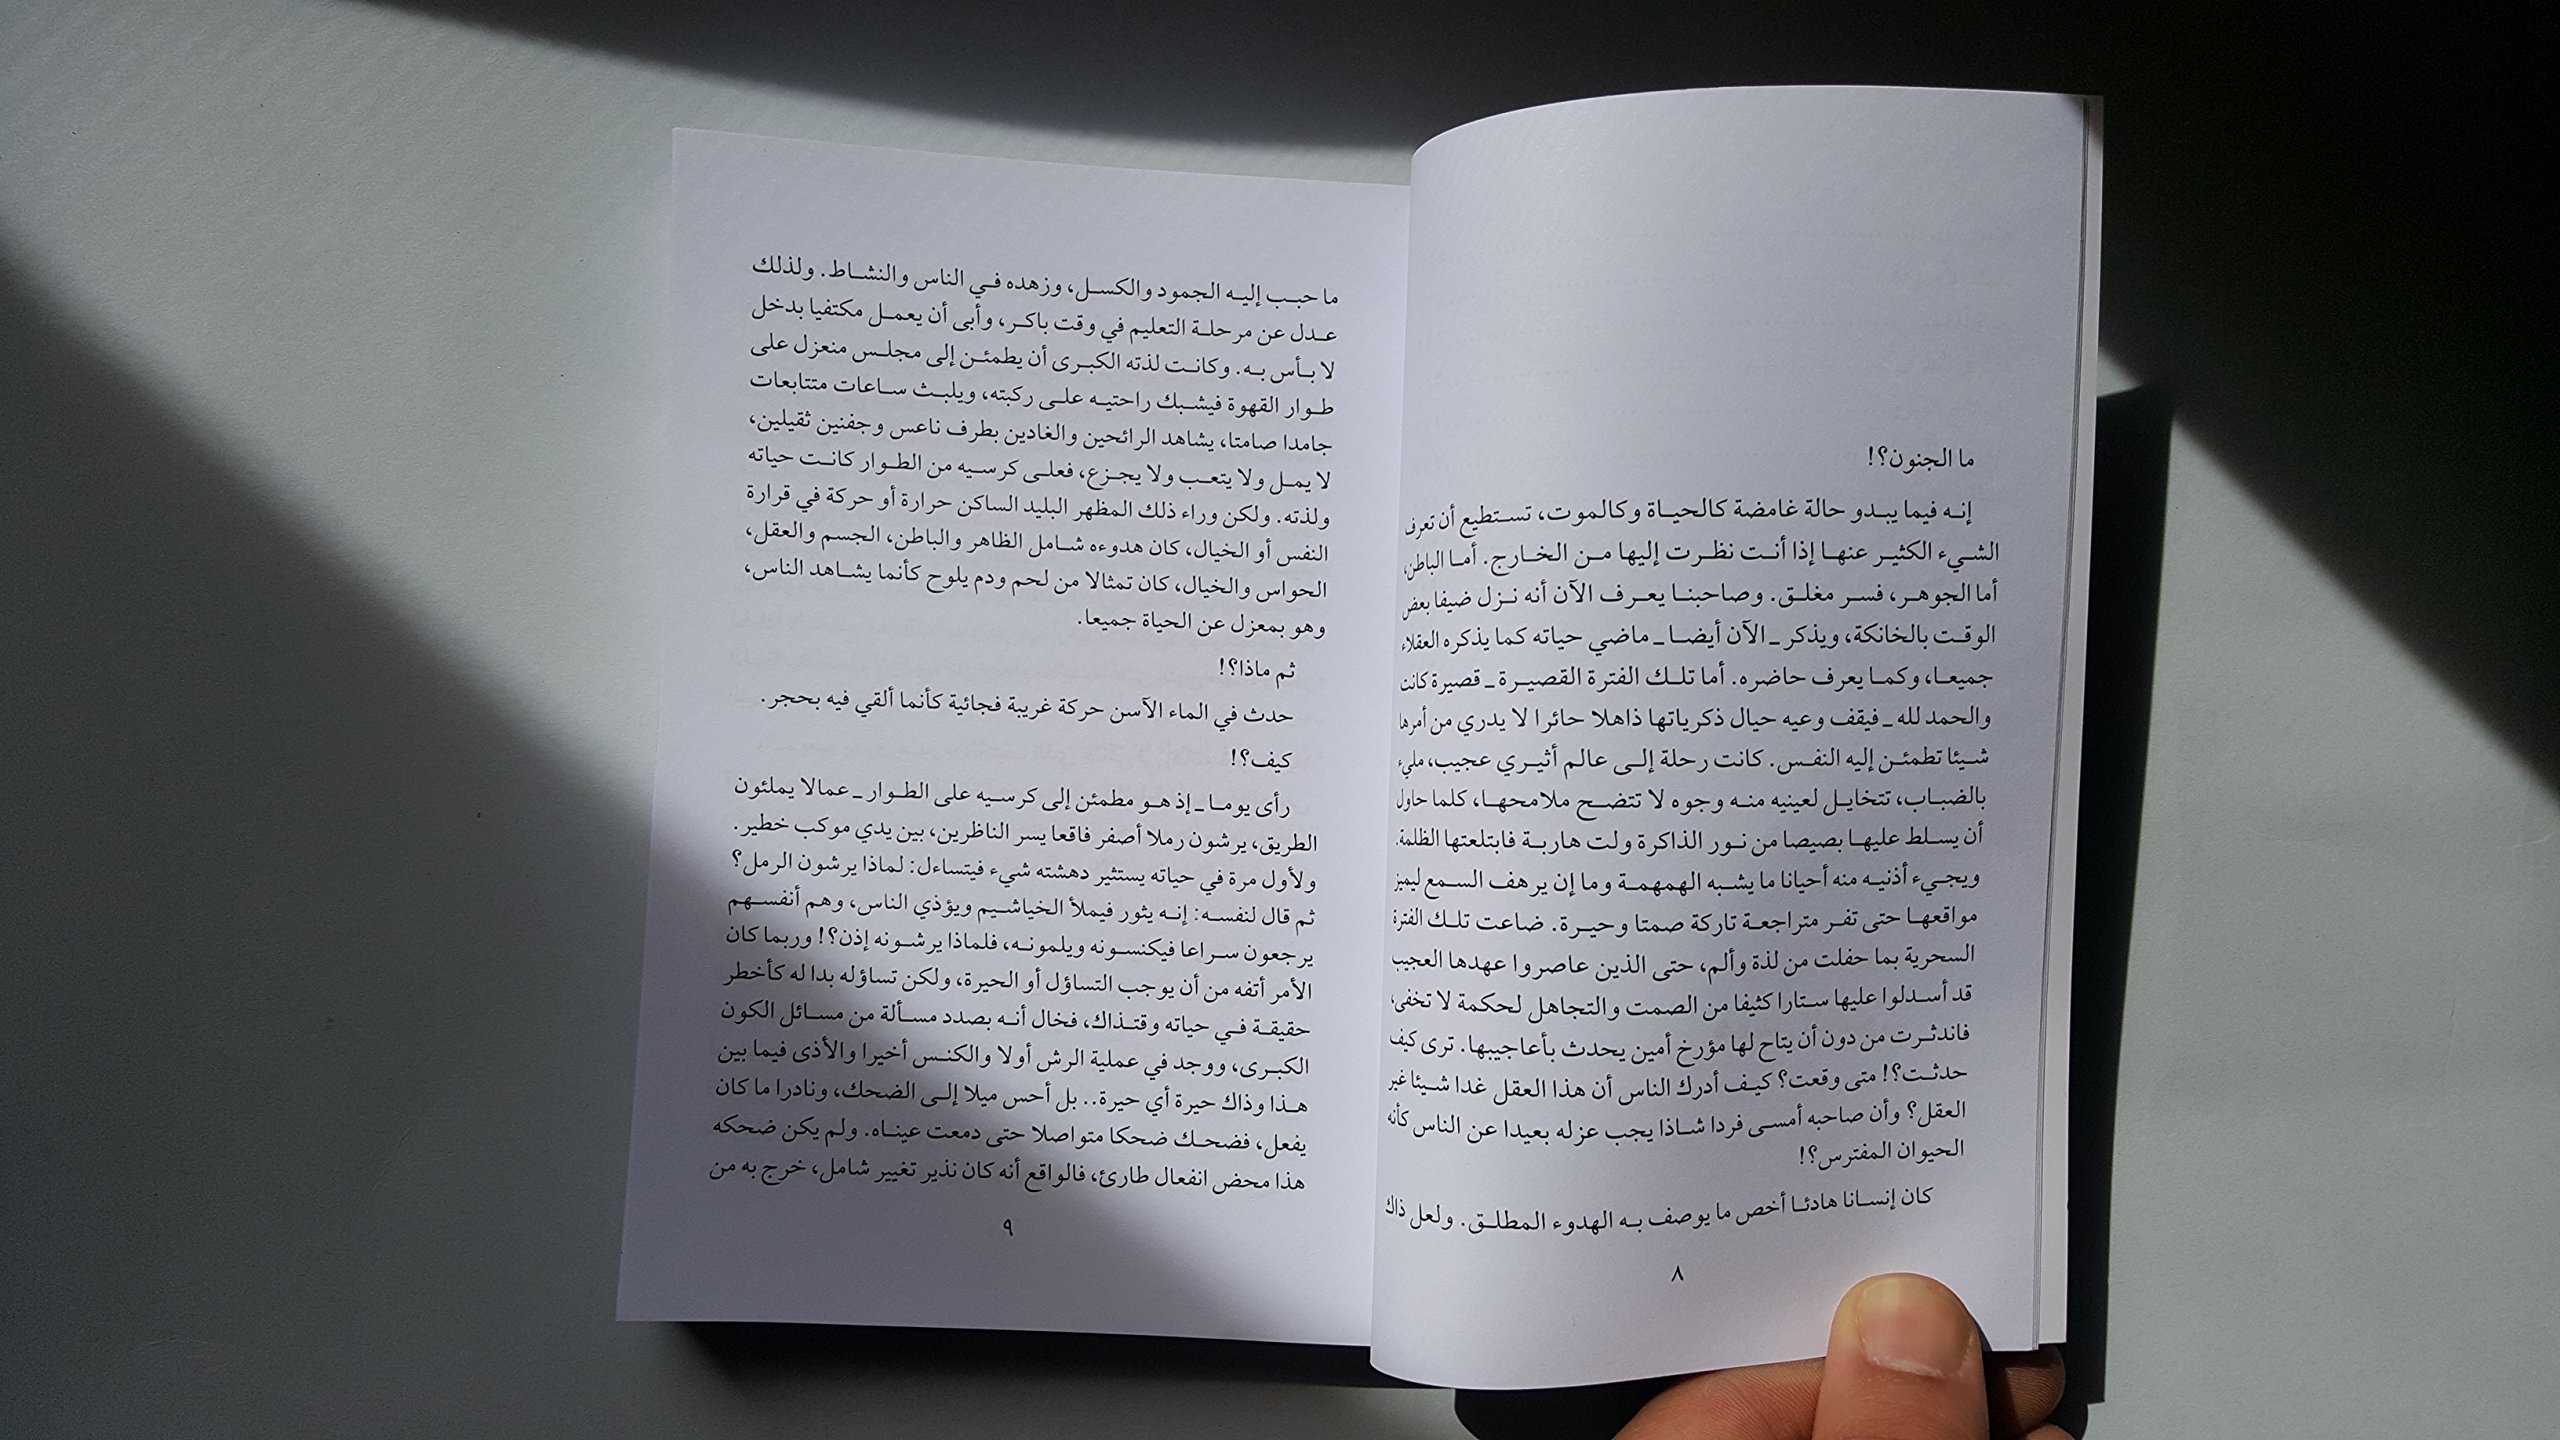 ما الجنون؟!
إنه فيما يبدو حالة غامضة كالحياة وكالموت، تستطيع أن تعرف
الشيء الكثير عنها إذا أنت نظرت إليها من الخارج. أما الباطن،
أما الجوهر، فسر مغلق. وصاحبنا يعرف الآن أنه نزل ضيفا بعض
الوقت بالخانكة، ويذكر ـ الآن أيضا ـ ماضي حياته كما يذكره العقلاء
جميعا، وكما يعرف حاضره. أما تلك الفترة القصيرة ـ قصيرة كانت
والحمد لله ـ فيقف وعيه حيال ذكرياتها ذاهلا حائرا لا يدري من أمرها
شيئا تطمئن إليه النفس. كانت رحلة إلى عالم أثيري عجيب، مليء
بالضباب، تتخايل لعينيه منه وجوه لا تتضح ملامحها، كلما حاول
أن يسلط عليها بصيصا من نور الذاكرة ولت هاربة فابتلعتها الظلمة.
ويجيء أذنيه منه أحيانا ما يشبه الهمهمة وما إن يرهف السمع ليميز
مواقعها حتى تفر متراجعة تاركة صمتا وحيرة. ضاعت تلك الفترة
السحرية بما حفلت من لذة وألم، حتى الذين عاصروا عهدها العجيب
قد أسدلوا عليها ستارا كثيفا من الصمت والتجاهل لحكمة لا تخفى،
فاندثرت من دون أن يتاح لها مؤرخ أمين يحدث بأعاجيبها. ترى كيف
حدثت؟! متى وقعت؟ كيف أدرك الناس أن هذا العقل غدا شيئا غير
العقل؟ وأن صاحبه أمسى فردا شاذا يجب عزله بعيدا عن الناس كأنه
الحيوان المفترس؟!
كان إنسانا هادئا أخص ما يوصف به الهدوء المطلق. ولعل ذاك
٨
ما حبب إليه الجمود والكسل، وزهده في الناس والنشاط. ولذلك
عدل عن مرحلة التعليم في وقت باكر، وأبى أن يعمل مكتفيا بدخل
لا بأس به. وكانت لذته الكبرى أن يطمئن إلى مجلس منعزل على
طوار القهوة فيشبك راحتيه على ركبته، ويلبث ساعات متتابعات
جامدا صامتا، يشاهد الرائحين والغادين بطرف ناعس وجفنين ثقيلين،
لا يمل ولا يتعب ولا يجزع، فعلى كرسيه من الطوار كانت حياته
ولذته. ولكن وراء ذلك المظهر البليد الساكن حرارة أو حركة في قرارة
النفس أو الخيال، كان هدوءه شامل الظاهر والباطن، الجسم والعقل،
الحواس والخيال، كان تمثالا من لحم ودم يلوح كأنما يشاهد الناس،
وهو بمعزل عن الحياة جميعا.
ثم ماذا؟!
حدث في الماء الآسن حركة غريبة فجائية كأنما ألقي فيه بحجر.
كيف؟!
رأى يوما ـ إذ هو مطمئن إلى كرسيه على الطوار ـ عمالا يملئون
الطريق، يرشون رملا أصفر فاقعا يسر الناظرين، بين يدي موكب خطير.
ولأول مرة في حياته يستثير دهشته شيء فيتساءل: لماذا يرشون الرمل؟
ثم قال لنفسه: إنه يثور فيملأ الخياشيم ويؤذي الناس، وهم أنفسهم
يرجعون سراعا فيكنسونه ويلمونه، فلماذا يرشونه إذن؟! وربما كان
الأمر أتفه من أن يوجب التساؤل أو الحيرة، ولكن تساؤله بدا له كأخطر
حقيقة في حياته وقتذاك، فخال أنه بصدد مسألة من مسائل الكون
الكبرى، ووجد في عملية الرش أولا والكنس أخيرا والأذى فيما بين
هذا وذاك حيرة أي حيرة.. بل أحس ميلا إلى الضحك، ونادرا ما كان
يفعل، فضحك ضحكا متواصلا حتى دمعت عيناه. ولم يكن ضحكه
هذا محض انفعال طارئ، فالواقع أنه كان نذير تغيير شامل، خرج به من
٩